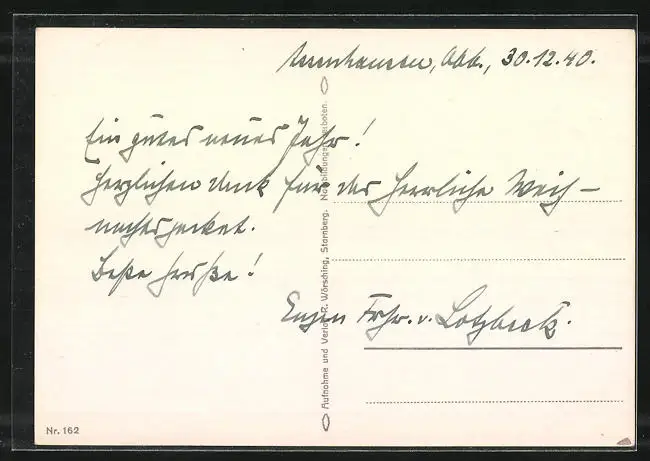 Assenhausen, Obb., 30.12.40.
Ein gutes neues Jahr!
Herzlichen dank für das herrliche Weih-
nachtspaket.
Beste Grüße!
Eugen Frhr. v. Lotzbeck.
Aufnahme und Verlag R. Wörsching, Starnberg. Nachbildung verboten.
Nr. 162